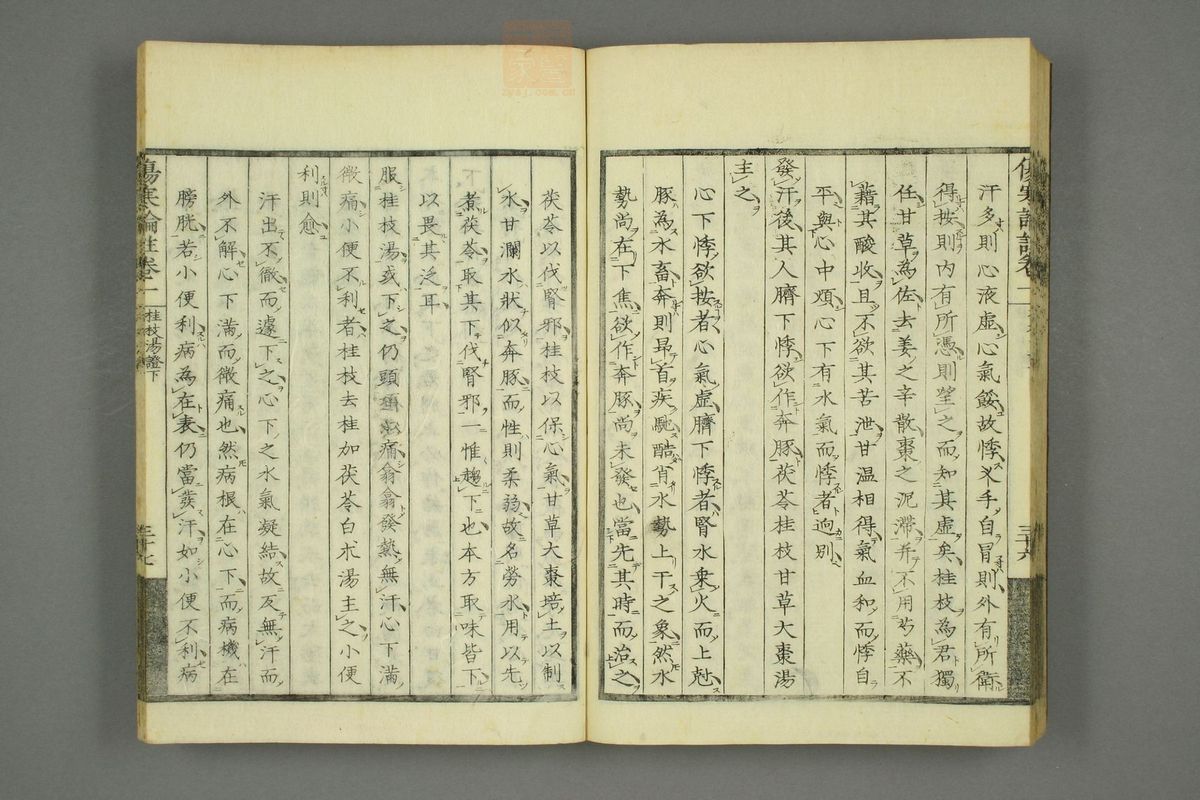 汗多則心液虛心氣餒故悸叉手自冒則外有所衛
得按則內有所憑則望之而知其虛矣桂枝為君獨
任甘草為佐去姜之辛散棗之泥滯并不用芍藥不
藉其酸收且不欲其苦泄甘温相得氣血和而悸自
平與心中煩心下有水氣而悸者逈別
發汗後其人臍下悸欲作奔豚茯苓桂枝甘草大棗湯
主之
心下悸欲按者心氣虛臍下悸者腎水乗火而上尅
豚為水畜奔則昂首疾馳酷肖水勢上干之象然水
勢尚在下焦欲作奔豚尚未發也當先其時而治之
傷寒論註卷一
三十六
茯苓以伐腎邪桂枝以保心氣甘草大棗培土以制
水甘瀾水狀似奔豚而性則柔弱故名勞水用以先
煮茯苓取其下伐腎邪一惟趨下也本方取味皆下
以畏其泛耳
服桂枝湯或下之仍頭項強痛翕翕發熱無汗心下滿
微痛小便不利者桂枝去桂加茯苓白朮湯主之小便
利則愈
汗出不徹而遽下之心下之水氣凝結故反無汗而
外不解心下滿而微痛也然病根在心下而病機在
膀胱若小便利病為在表仍當發汗如小便不利病
傷寒論註卷一
桂枝湯證下
三十七